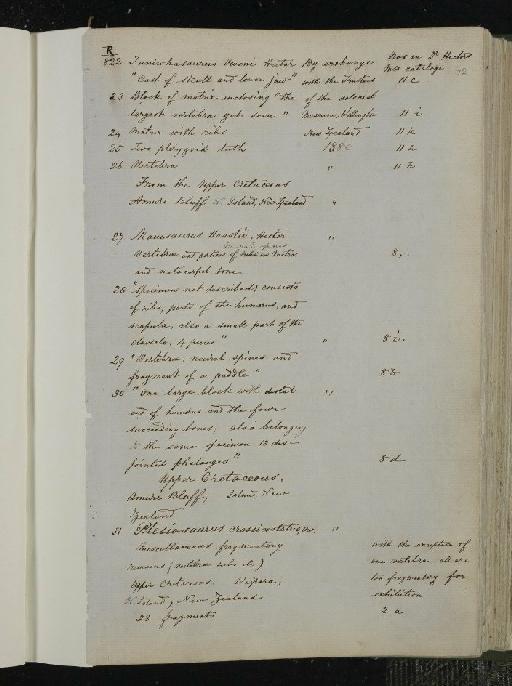 R
822 Taniwhasaurus Oweni Hector By exchange Nos in Dr Hectors
"Cast of skull and lower jaw" with the Trustees Mss catalogue
11 c
23 Block of matrix enclosing "the of the colonial
largest vertebra yet seen" Museum, Wellington 11 i
24 Matrix with ribs New Zealand 11 k
25 Two pterygoid teeth 1880 11
26 Vertebra " 11
From the Upper Cretaceous
Amuri Bluff Island, New Zealand "
27 Mauisaurus Haastii, Hector "
Vertebrae and portions of ribs in matrix 8
and metacarpal bone
28 "Specimen not described; consists
of ribs, parts of the humerus, and
scapula, also a small part of the
clavicle, 4 pieces" " 8 i
29 "Vertebra, neural spines and
fragment of a paddle" 8
30 "One large block with distal "
end of humerus and the four
succeeding bones; also belonging
to the same specimen 13 dis-
jointed phalanges" 8 d
Upper Cretaceous,
Amuri Bluff, Island, New
Zealand
31 Plesiosaurus crassicostatus, "
Miscellaneous fragmentary with the exception of
remains (
one vertebra all are
Upper Cretaceous. Waipara, too fragmentary for
Island, New Zealand. exhibition
23 fragments 2 a